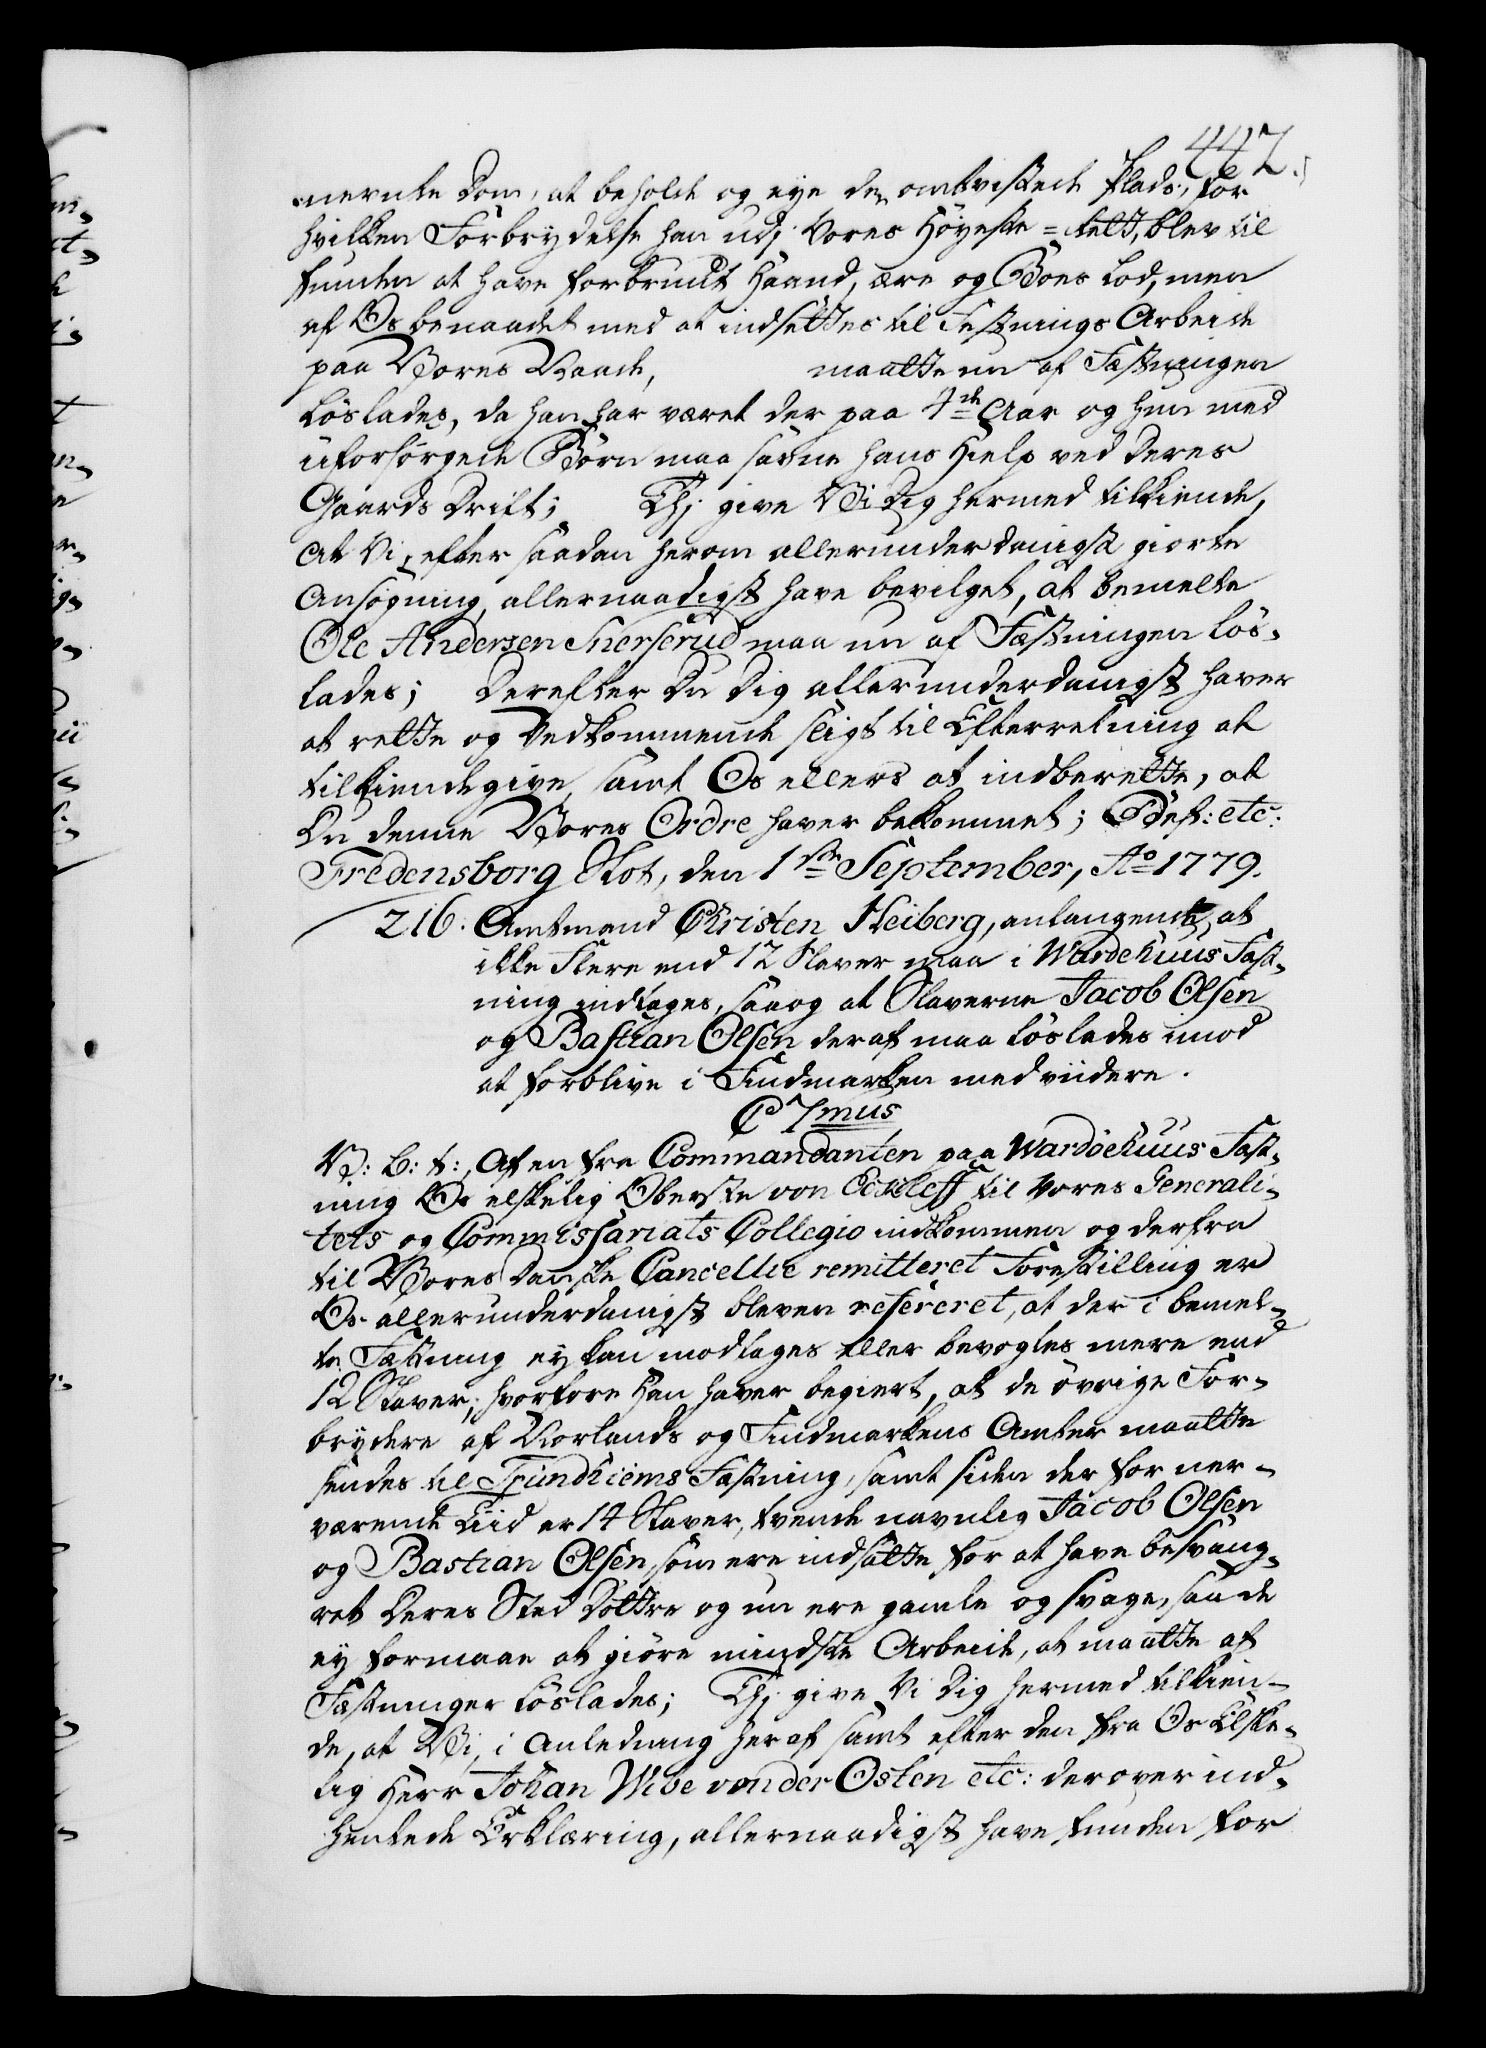 442.
mernte Dom, at beholde og eye den omtvistede Plads, for
hvilken Forbrydelse han udj Vores Höyeste-Rett, blev til
funden at have forbrudt Haand, Ære og Boes Lod, men
af Os benaadet med at indsættes til Fæstnings Arbeide
paa Vores Naade, maatte nu af Fæstningen
löslades, da han har været der paa 4de Aar og hun med
uforsörgede Börn maa savne hans Hielp ved deres
Gaards Drift; Thj give Vi Dig hermed tilkiende,
at Vi, efter saadan herom allerunderdanigst giorte
Ansögning, allernaadigst have bevilget, at bemelte
Ole Andersen Snerserud maa nu af Fæstningen lös-
lades; Derefter Du Dig allerunderdanigst haver
at rette og Vedkommende sligt til Efterretning at
tilkiendegive, samt Os ellers at indberette, at
Du denne Vores Ordre haver bekommet; etc:
Fredensborg Slot, den 1ste September, Ao 1779.
216. Amtmand Christen Heiberg, anlangende, at
ikke flere end 12 Slaver maa i Wardehuus Fæst-
ning indtages, saa og at Slaverne Jacob Olsen
og Bastian Olsen deraf maa löslades imod
at forblive i Findmarken med viidere.
C 7mus
V: G: T:, Af en fra Commandanten paa Wardöehuus Fæst-
ning Os elskelig Oberste von Eckleff til Vores Generali-
tets og Commissariats Collegio indkommen og derfra
til Vores Danske Cancellie remitteret Forestilling er
Os allerunderdanigst bleven refereret, at der i bemel-
te Fæstning ey kan modtages eller bevogtes mere end
12 Slaver, hvorfore Han haver begiert, at de övrige For-
brydere af Norlands og Findmarkens Amter maatte
sendes til Trundhiems Fæstning, samt siden der for nær-
værende Tiid er 14 Slaver, tvende navnlig Jacob Olsen
og Bastian Olsen, som ere indsatte for at have besvang-
ret deres Sted Döttre og nu ere gamle og svage, saa de
ey formaae at giöre mindste Arbeide, at maatte af
Fæstninger löslades; Thj give Vi Dig hermed tilkien-
de, at Vi, i Anledning heraf samt efter den fra Os Elske-
lig Herr Johan Wibe von der Osten etc: derover ind-
hentede Erklæring, allernaadigst have funden for